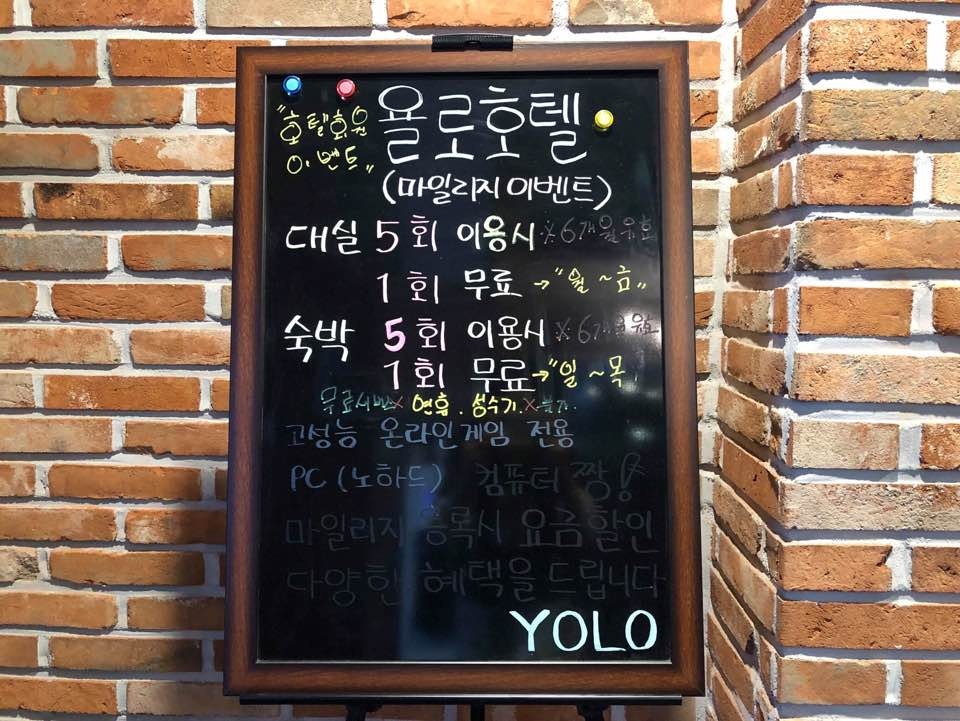 "호텔회원 이벤트"
욜로호텔
(마일리지 이벤트)
대실 5회 이용시 ※6개월유효
1회 무료 → "월~금"
숙박 5회 이용시 ※6개월
1회 무료 → "일~목
무료시 X 연휴. 성수기. X 불가.
고성능 온라인게임 전용
PC (노하드) 컴퓨터 짱!
마일리지 등록시 요금할인
다양한 혜택을 드립니다
YOLO